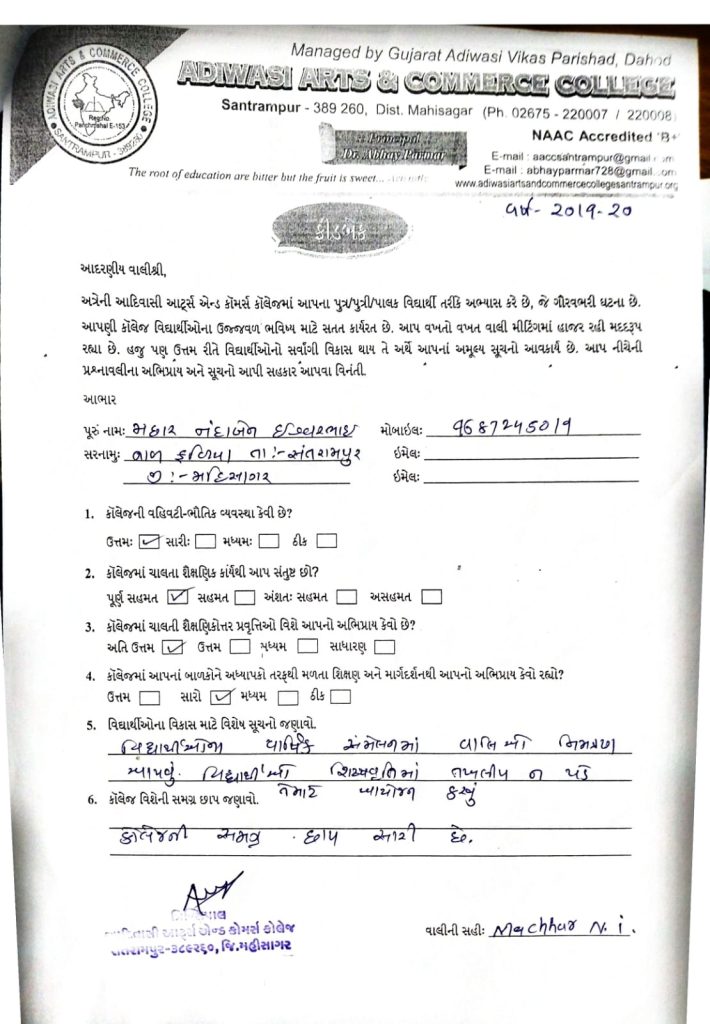 Managed by Gujarat Adiwasi Vikas Parishad, Dahod
ADIWASI ARTS & COMMERCE COLLEGE
ADIWASI ARTS & COMMERCE COLLEGE
Reg.No.
Panchmahal E-153
SANTRAMPUR - 389260
Santrampur - 389 260, Dist. Mahisagar (Ph. 02675 - 220007 / 220008)
NAAC Accredited 'B+
Principal
Dr. Abhay Parmar
E-mail : aaccsantrampur@gmail.com
E-mail : abhayparmar728@gmail.com
The root of education are bitter but the fruit is sweet...
www.adiwasiartsandcommercecollegesantrampur.org
વર્ષ- 2019-20
ફીડબેક
આદરણીય વાલીશ્રી,
અત્રેની આદિવાસી આર્ટ્સ એન્ડ કૉમર્સ કૉલેજમાં આપના પુત્ર/પુત્રી/પાલક વિદ્યાર્થી તરીકે અભ્યાસ કરે છે, જે ગૌરવભરી ઘટના છે.
આપણી કૉલેજ વિદ્યાર્થીઓના ઉજ્જવળ ભવિષ્ય માટે સતત કાર્યરત છે. આપ વખતો વખત વાલી મીટિંગમાં હાજર રહી મદદરૂપ
રહ્યા છે. હજુ પણ ઉત્તમ રીતે વિદ્યાર્થીઓનો સર્વાંગી વિકાસ થાય તે અર્થે આપનાં અમૂલ્ય સૂચનો આવકાર્ય છે. આપ નીચેની
પ્રશ્નાવલીના અભિપ્રાય અને સૂચનો આપી સહકાર આપવા વિનંતી.
આભાર
પૂરું નામઃ મછાર નંદાબેન ઈશ્વરભાઇ મોબાઇલઃ 9687245019
સરનામુઃ ફળિયા તા:-સંતરામપુર ઇમેલઃ
જી:-મહિસાગર ઇમેલઃ
1. કૉલેજની વહિવટી-ભૌતિક વ્યવસ્થા કેવી છે?
ઉત્તમઃ ✓ સારીઃ મધ્યમઃ ઠીક
2. કૉલેજમાં ચાલતા શૈક્ષણિક કાર્યથી આપ સંતુષ્ટ છો?
પૂર્ણ સહમત ✓ સહમત અંશતઃ સહમત અસહમત
3. કૉલેજમાં ચાલતી શૈક્ષણિકોત્તર પ્રવૃત્તિઓ વિશે આપનો અભિપ્રાય કેવો છે?
અતિ ઉત્તમ ✓ ઉત્તમ મધ્યમ સાધારણ
4. કૉલેજમાં આપનાં બાળકોને અધ્યાપકો તરફથી મળતા શિક્ષણ અને માર્ગદર્શનથી આપનો અભિપ્રાય કેવો રહ્યો?
ઉત્તમ સારો ✓ મધ્યમ ઠીક
5. વિદ્યાર્થીઓના વિકાસ માટે વિશેષ સૂચનો જણાવો.
વિદ્યાર્થીઓના વાર્ષિક સંમેલનમાં વાલિઓ નિમત્રણ
આપવું. વિદ્યાર્થીઓ શિષ્યવૃતિમાં તખલીપ ન પડે
6. કૉલેજ વિશેની સમગ્ર છાપ જણાવો. તેમાટે આયોજન કરવું
કોલેજની સમગ્ર છાપ સારી છે.
પ્રિન્સિપાલ
આદિવાસી આર્ટ્સ એન્ડ કોમર્સ કોલેજ
સંતરામપુર-૩૮૯૨૬૦, જિ.મહીસાગર
વાલીની સહીઃ Machhar N. i.